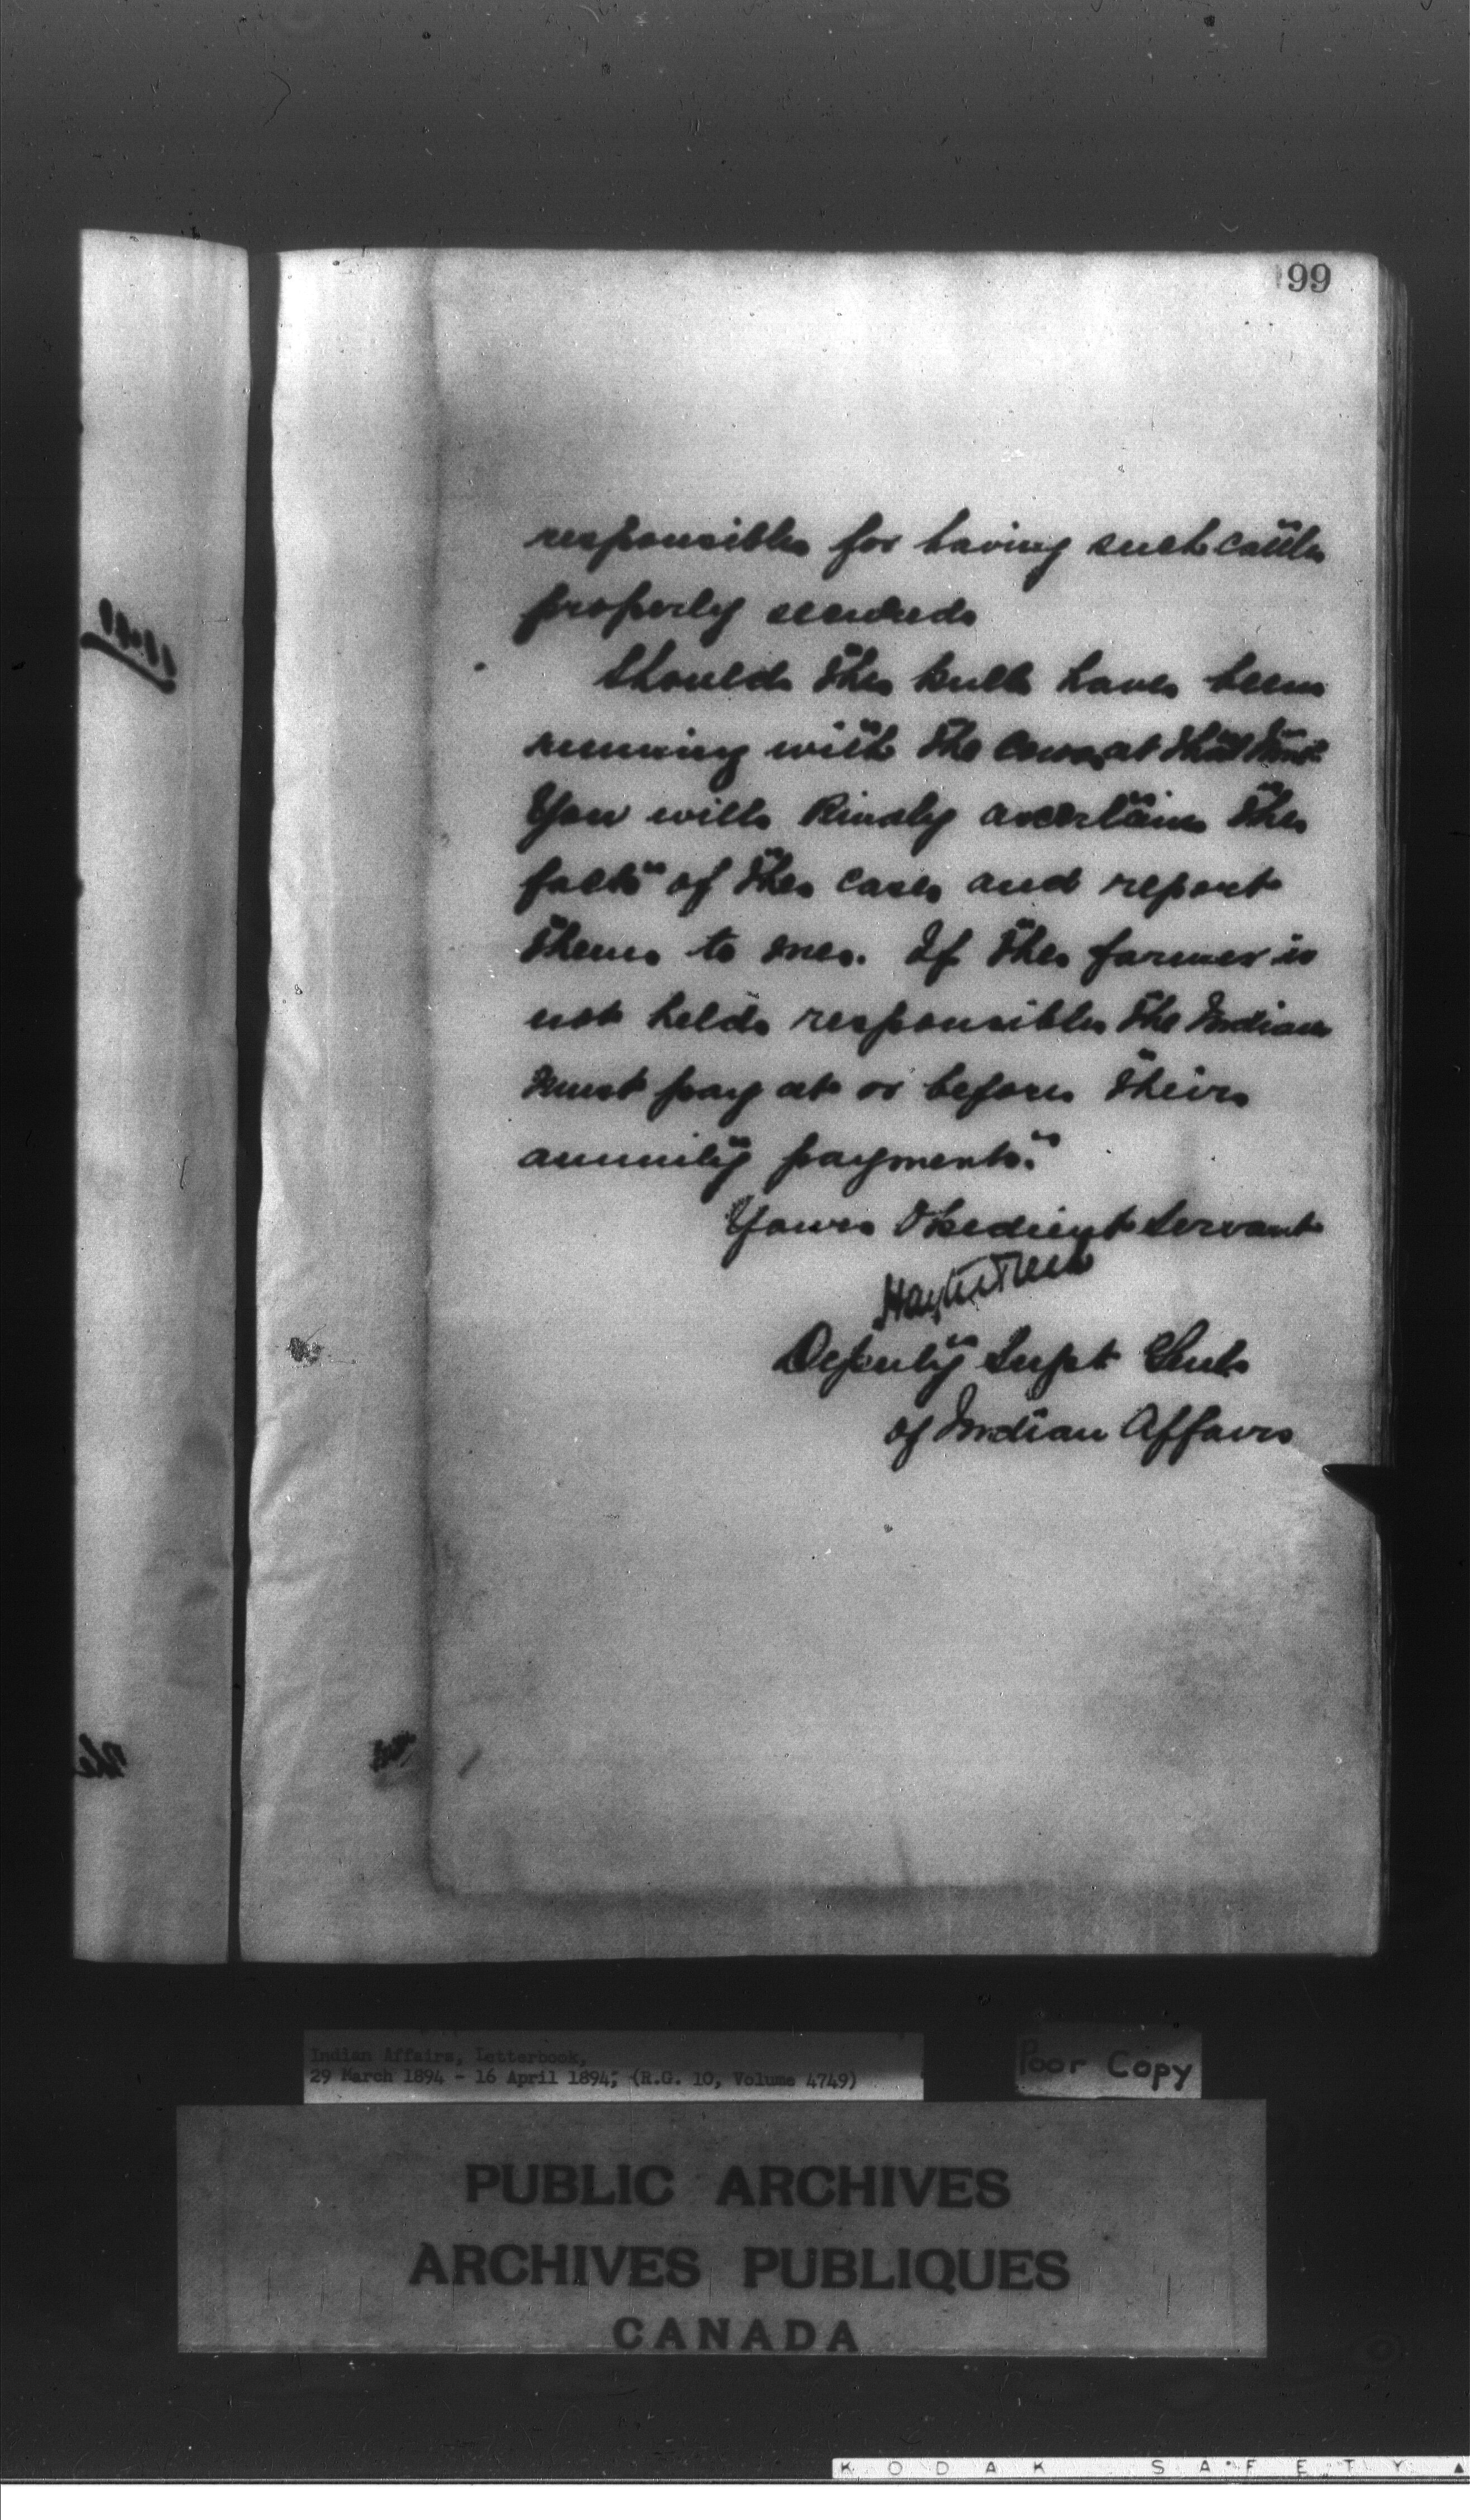 99
responsible for having such cattle
properly secured
Should the bull have been
running with the cows at that time
You will kindly ascertain the
facts of the case and report
them to me. If the farmer is
not held responsible the Indian
must pay at or before their
annuity payments.
Yours Obedient Servant
Hayter Reed
Deputy Supt Genl
of Indian Affairs
Indian Affairs, Letterbook,
29 March 1894 - 16 April 1894; (R.G. 10, Volume 4749)
Poor Copy
PUBLIC ARCHIVES
ARCHIVES PUBLIQUES
CANADA
KODAK SAFETY